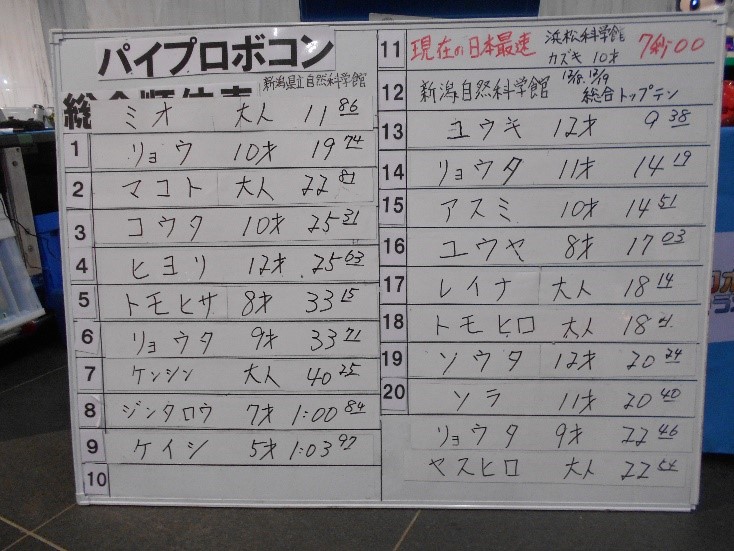 パイプロボコン
新潟県立自然科学館
ミオ 大人 11 86
1 リョウ 10才 19 74
2 マコト 大人 22 81
3 コウタ 10才 25 31
4 ヒヨリ 12才 25 63
5 トモヒサ 8才 33 15
6 リョウタ 9才 33 71
7 ケンシン 大人 40 25
8 ジンタロウ 7才 1:00 84
9 ケイシ 5才 1:03 92
10
11 現在の日本最速 浜松科学館 カズキ 10才 7秒00
12 新潟自然科学館 12/18.12/19 総合トップテン
13 ユウキ 12才 9 38
14 リョウタ 11才 14 19
15 アスミ 10才 14 51
16 ユウヤ 8才 17 03
17 レイナ 大人 18 14
18 トモヒロ 大人 18
19 ソウタ 12才 20 24
20 ソラ 11才 20 40
リョウタ 9才 22 46
ヤスヒロ 大人 22 54